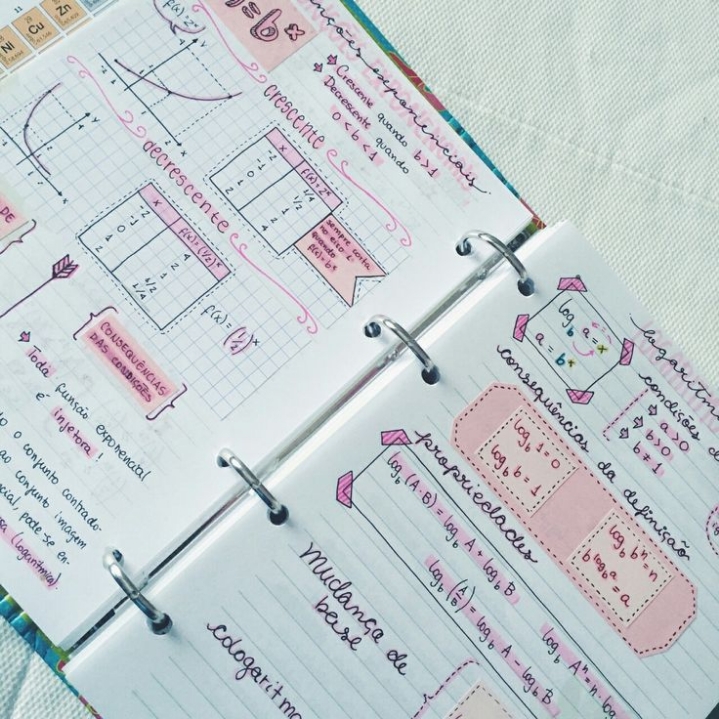 Ni
Cu
Zn
= b x
funções exponenciais
Crescente quando b>1
Decrescente quando
0<b<1
crescente
x f(x)=2ˣ
-2 1/4
-1 1/2
0 1
1 2
2 4
sempre corta
no eixo 1
quando
f(x)=bˣ
decrescente
x f(x)=(1/2)ˣ
-2 4
-1 2
0 1
1 1/2
2 1/4
f(x)=(1/2)ˣ
DE
CONSEQUÊNCIAS
DAS CONDIÇÕES
Toda função exponencial
é injetora!
o conjunto contrado-
ao conjunto imagem
pode-se en-
(logarítmica).
log_b a = x
a = bˣ
condições
a>0
b>0
b≠1
consequências da definição
log_b 1 = 0
log_b b = 1
log_b bⁿ = n
b^(log_b a) = a
propriedades
log_b (A·B) = log_b A + log_b B
log_b (A/B) = log_b A - log_b B
log_b Aⁿ = n·log
Mudança de
base